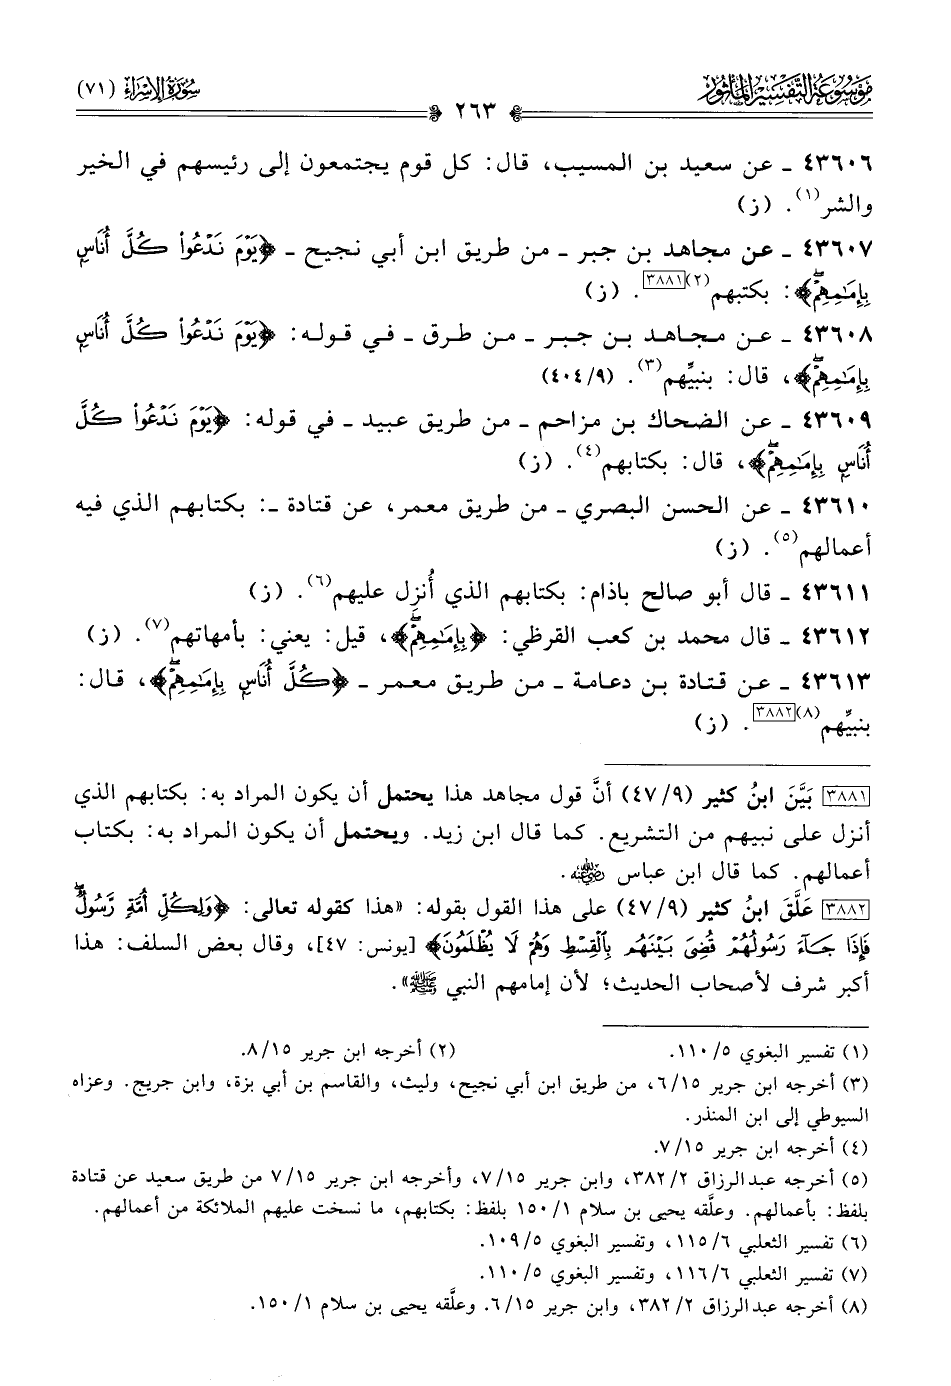 مَوْسُوعَةُ التَّفْسِيرِ المَأْثُور
سُورَةُ الإِسْرَاءِ (٧١)
٢٦٣
٤٣٦٠٦ ـ عن سعيد بن المسيب، قال: كل قوم يجتمعون إلى رئيسهم في الخير
والشر(١). (ز)
٤٣٦٠٧ ـ عن مجاهد بن جبر ـ من طريق ابن أبي نجيح ـ ﴿يَوْمَ نَدْعُوا۟ كُلَّ أُنَاسٍ
بِإِمَـٰمِهِمْ﴾: بكتبهم(٢)[٣٨٨١]. (ز)
٤٣٦٠٨ ـ عن مجاهد بن جبر ـ من طرق ـ في قوله: ﴿يَوْمَ نَدْعُوا۟ كُلَّ أُنَاسٍ
بِإِمَـٰمِهِمْ﴾، قال: بنبيِّهم(٣). (٤٠٤/٩)
٤٣٦٠٩ ـ عن الضحاك بن مزاحم ـ من طريق عبيد ـ في قوله: ﴿يَوْمَ نَدْعُوا۟ كُلَّ
أُنَاسٍ بِإِمَـٰمِهِمْ﴾، قال: بكتابهم(٤). (ز)
٤٣٦١٠ ـ عن الحسن البصري ـ من طريق معمر، عن قتادة ـ: بكتابهم الذي فيه
أعمالهم(٥). (ز)
٤٣٦١١ ـ قال أبو صالح باذام: بكتابهم الذي أُنزِل عليهم(٦). (ز)
٤٣٦١٢ ـ قال محمد بن كعب القرظي: ﴿بِإِمَـٰمِهِمْ﴾، قيل: يعني: بأمهاتهم(٧). (ز)
٤٣٦١٣ ـ عن قتادة بن دعامة ـ من طريق معمر ـ ﴿كُلَّ أُنَاسٍ بِإِمَـٰمِهِمْ﴾، قال:
بنبيِّهم(٨)[٣٨٨٢]. (ز)
[٣٨٨١] بَيَّنَ ابنُ كثير (٤٧/٩) أنَّ قول مجاهد هذا يحتمل أن يكون المراد به: بكتابهم الذي
أنزل على نبيهم من التشريع. كما قال ابن زيد. ويحتمل أن يكون المراد به: بكتاب
أعمالهم. كما قال ابن عباس رضي الله عنه.
[٣٨٨٢] عَلَّقَ ابنُ كثير (٤٧/٩) على هذا القول بقوله: «هذا كقوله تعالى: ﴿وَلِكُلِّ أُمَّةٍ رَّسُولٌ
فَإِذَا جَآءَ رَسُولُهُمْ قُضِىَ بَيْنَهُم بِٱلْقِسْطِ وَهُمْ لَا يُظْلَمُونَ﴾ [يونس: ٤٧]، وقال بعض السلف: هذا
أكبر شرف لأصحاب الحديث؛ لأن إمامهم النبي ﷺ».
(١) تفسير البغوي ١١٠/٥.
(٢) أخرجه ابن جرير ٨/١٥.
(٣) أخرجه ابن جرير ٦/١٥، من طريق ابن أبي نجيح، وليث، والقاسم بن أبي بزة، وابن جريج. وعزاه
السيوطي إلى ابن المنذر.
(٤) أخرجه ابن جرير ٧/١٥.
(٥) أخرجه عبدالرزاق ٣٨٢/٢، وابن جرير ٧/١٥، وأخرجه ابن جرير ٧/١٥ من طريق سعيد عن قتادة
بلفظ: بأعمالهم. وعلَّقه يحيى بن سلام ١٥٠/١ بلفظ: بكتابهم، ما نسخت عليهم الملائكة من أعمالهم.
(٦) تفسير الثعلبي ١١٥/٦، وتفسير البغوي ١٠٩/٥.
(٧) تفسير الثعلبي ١١٦/٦، وتفسير البغوي ١١٠/٥.
(٨) أخرجه عبدالرزاق ٣٨٢/٢، وابن جرير ٦/١٥. وعلَّقه يحيى بن سلام ١٥٠/١.